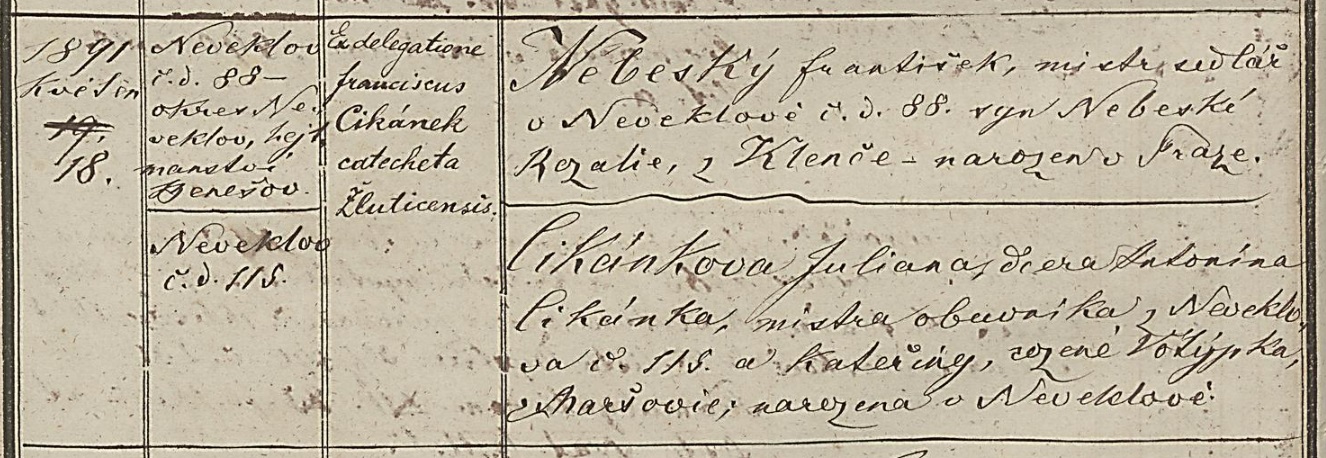 1891
Květen
19.
18.
Neveklov
č. d. 88 –
okres Ne-
veklov, hejt
manství
Benešov.
Neveklov
č. d. 115.
Ex delegatione
franciscus
Cikánek
catecheta
Žluticensis.
Nebeský František, mistr sedlář
v Neveklově č. d. 88. syn Nebeské
Rozalie, z Klenče – narozen v Praze.
Cikánkova Juliana, dcera Antonína
Cikánka, mistra obuvníka z Neveklo-
va č. 115. a Kateřiny, rozené Votýpka,
z Maršovic; narozena v Neveklově.